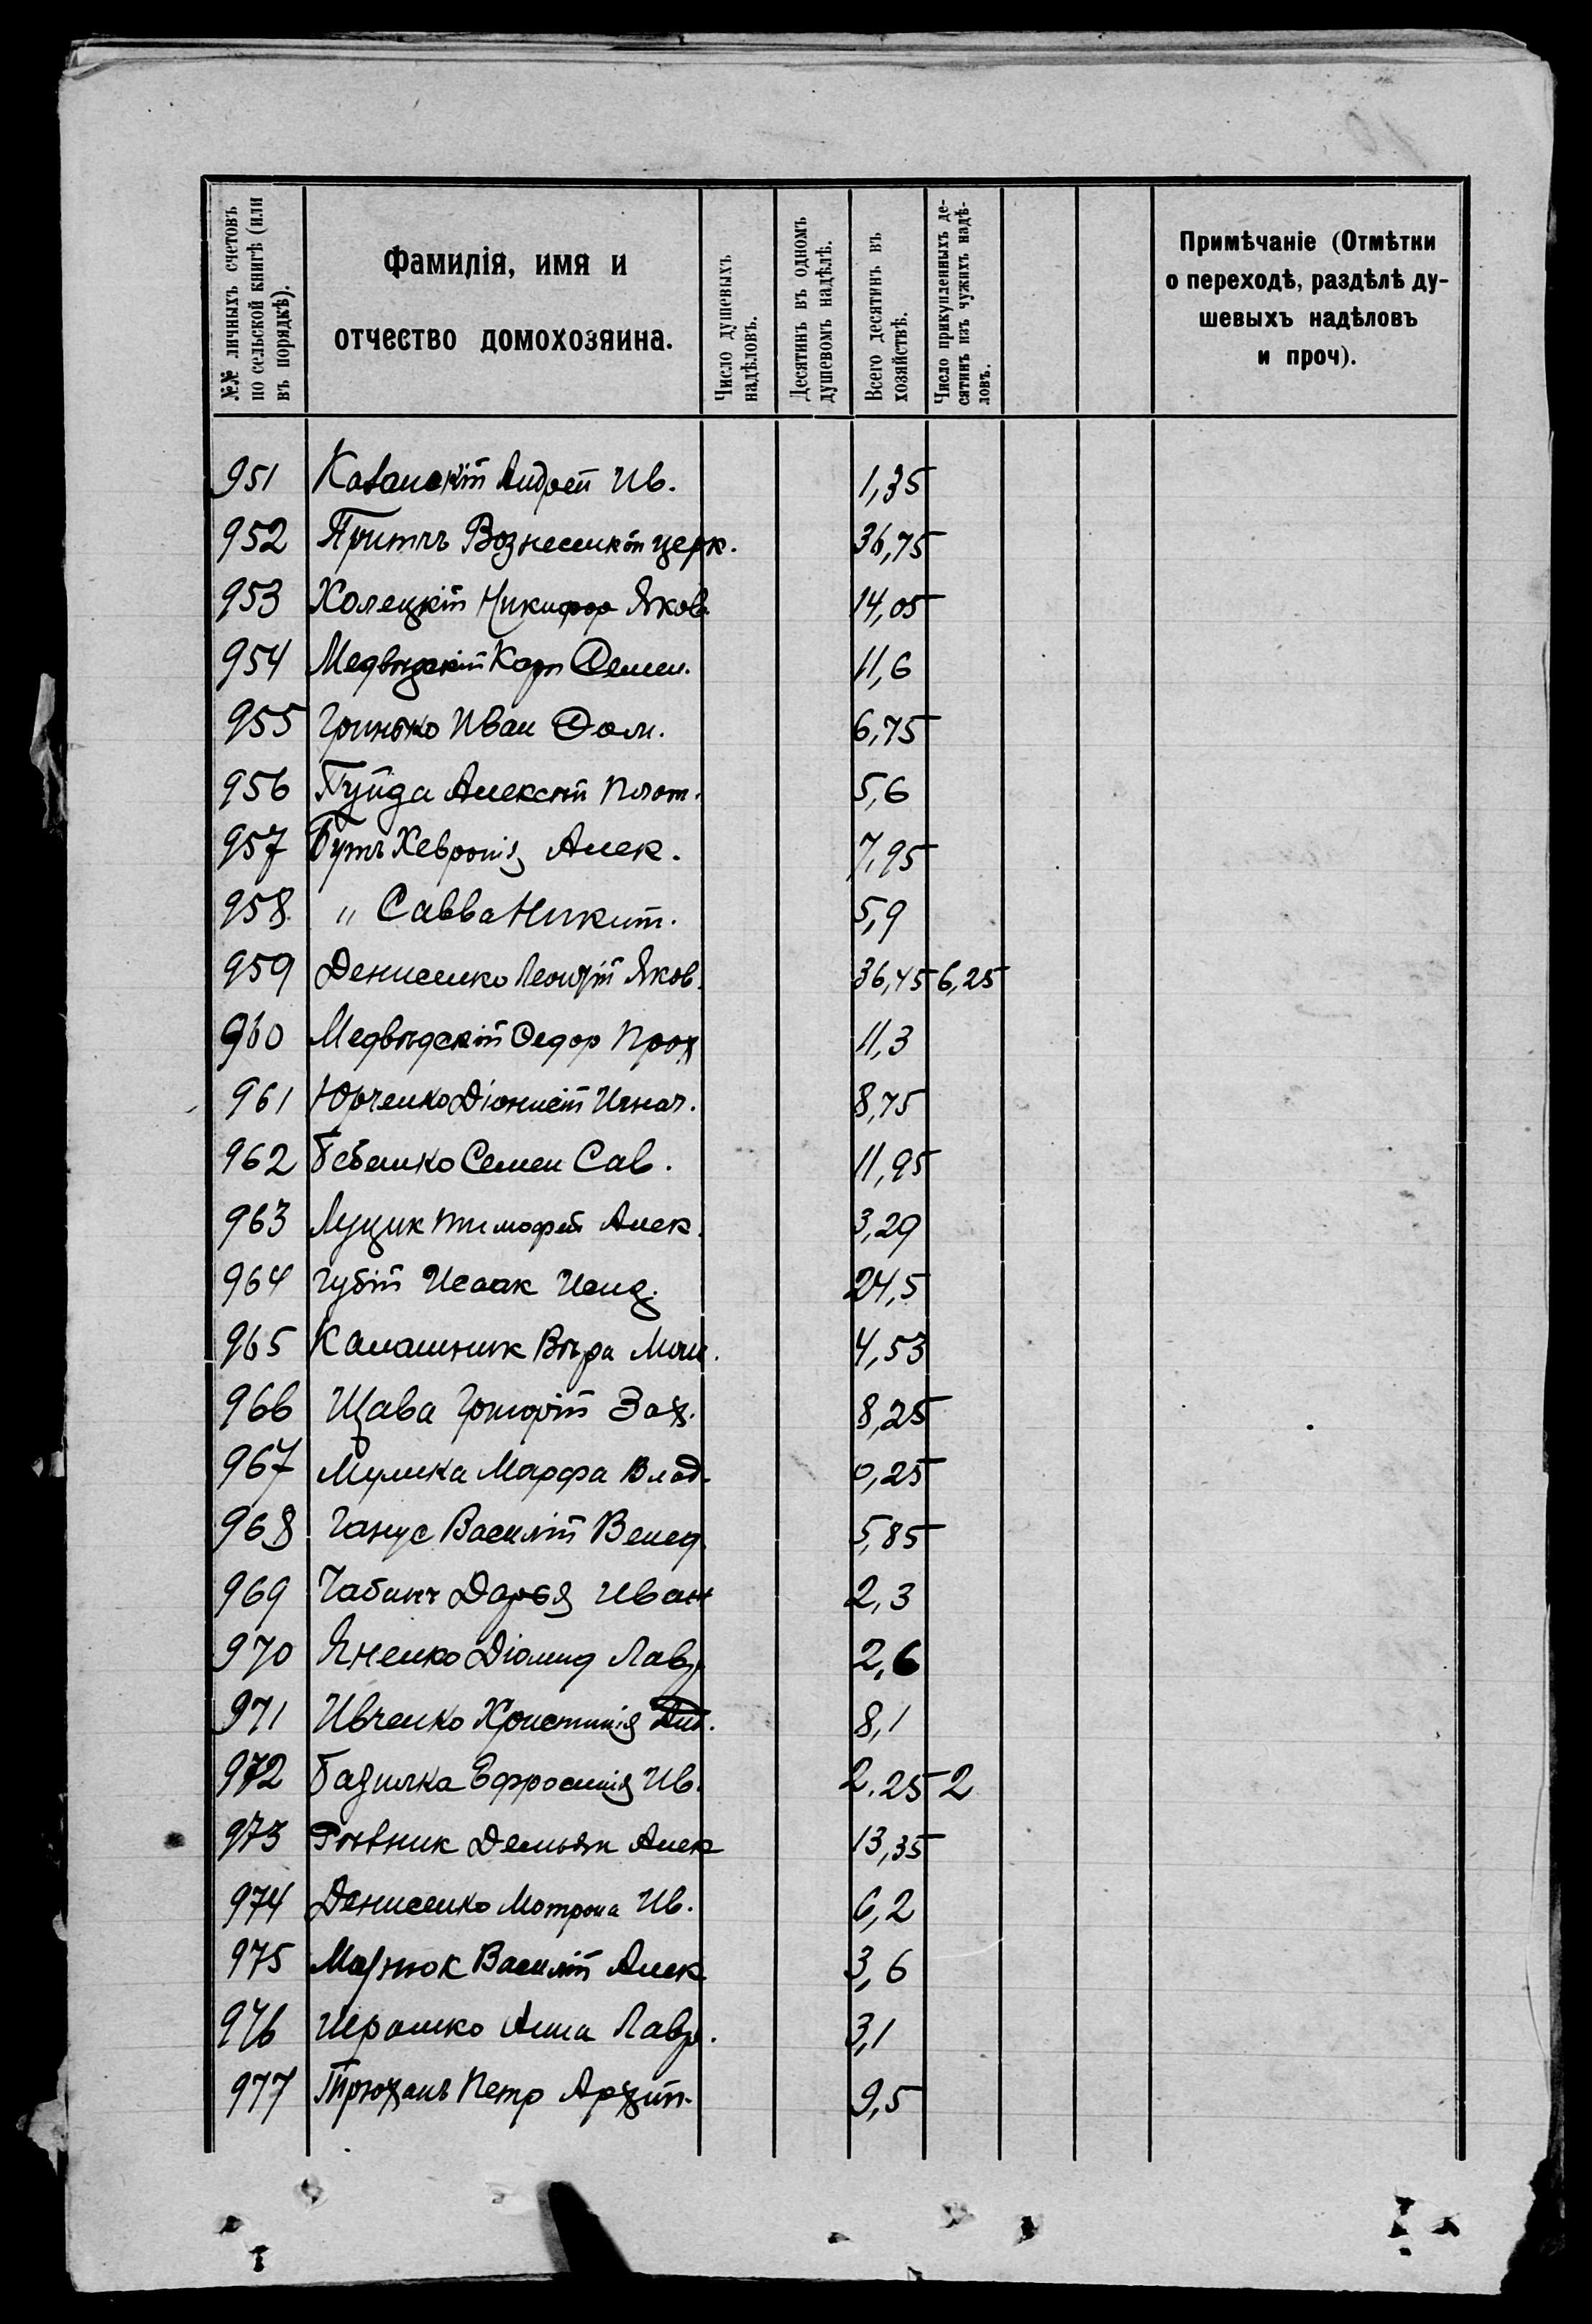 №№ личныхъ счетовъ по сельской книгѣ (или въ порядкѣ).
Фамилія, имя и
отчество домохозяина.
Число душевыхъ надѣловъ.
Десятинъ въ одномъ душевомъ надѣлѣ.
Всего десятинъ въ хозяйствѣ.
Число прикупленныхъ десятинъ изъ чужихъ надѣловъ.
Примѣчаніе (Отмѣтки
о переходѣ, раздѣлѣ ду-
шевыхъ надѣловъ
и проч).
951 Андрей Ив. 1,35
952 Притчъ Вознесенкой церк. 36,75
953 Холецкій Никифор Яков. 14,05
954 Медвѣдскій Карп Семен. 11,6
955 Гринько Иван 6,75
956 Алексѣй Плат. 5,6
957 Бутъ Хевронія Алек. 7,95
958 " Савва Никит. 5,9
959 Денисенко Леонтій Яков. 36,45 6,25
960 Медвѣдскій Федор Прох 11,3
961 Юрченко Діонисій Игнат. 8,75
962 Бебешко Семен Сав. 11,95
963 Луцик Тимофей Алек. 3,29
964 Губій Исаак 24,5
965 Калашник Вѣра 4,53
966 Щава Григорій Зах. 8,25
967 Мулика Марфа Влад. 0,25
968 Ганус Василій Венед. 5,85
969 Чабанъ Дарья Иван 2,3
970 Яненко Діомид Лавр 2,6
971 Ивченко Христинія 8,1
972 Базилка Ефросинія Ив. 2.25 2
973 Демьян Алек 13,35
974 Денисенко Мотрона Ив. 6,2
975 Василій Алек 3,6
976 Анна Лавр. 3,1
977 Трюханъ Петр Архип. 9,5